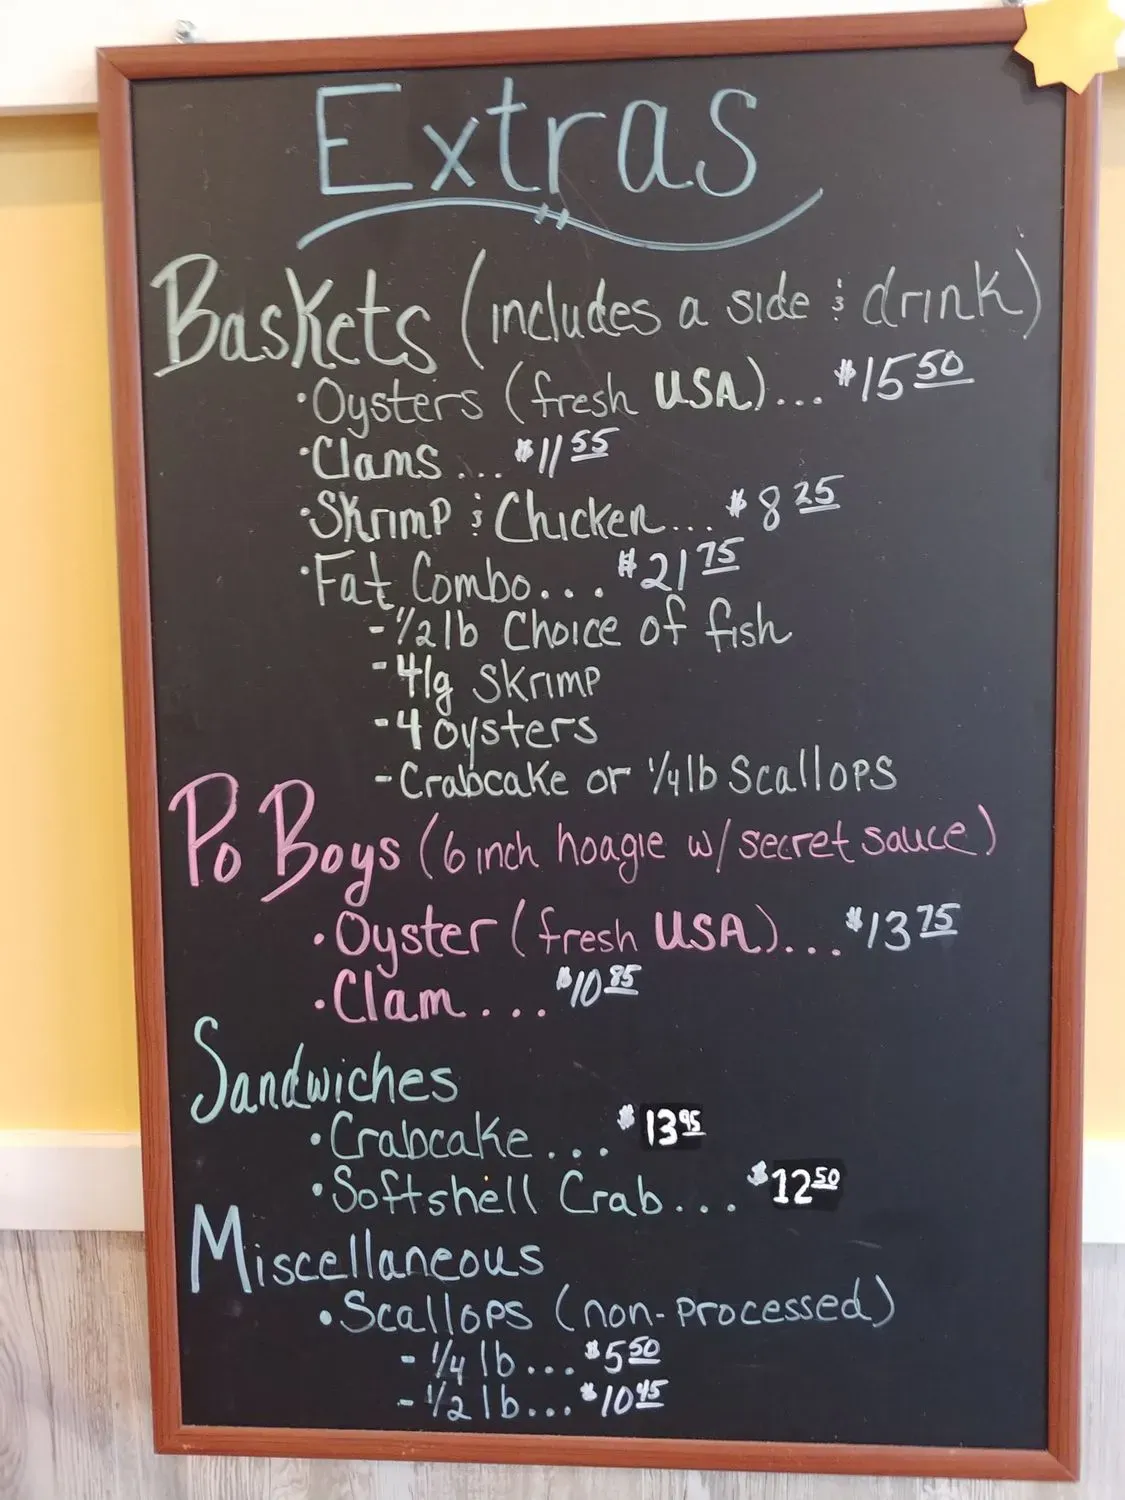 Extras
Baskets (includes a side & drink)
·Oysters (fresh USA)... $15.50
·Clams... $11.55
·Skrimp & Chicken... $8.25
·Fat Combo... $21.75
-1/2lb Choice of fish
-4lg Skrimp
-4 oysters
-Crabcake or 1/4lb Scallops
Po Boys (6 inch hoagie w/ secret sauce)
·Oyster (fresh USA)... $13.75
·Clam... $10.85
Sandwiches
·Crabcake... $13.95
·Softshell Crab... $12.50
Miscellaneous
·Scallops (non-processed)
-1/4 lb... $5.50
-1/2 lb... $10.45